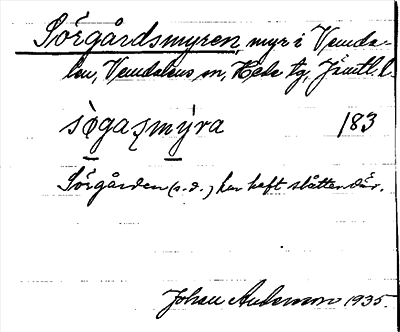 Sörgårdsmyren, myr i Vemda-
len, Vemdalens sn, Hede tg, Jämtl. l.
sø̀gaʂmỳra 183
Sörgården (s.d.) har haft slåtter där.
Johan Anderson 1935.